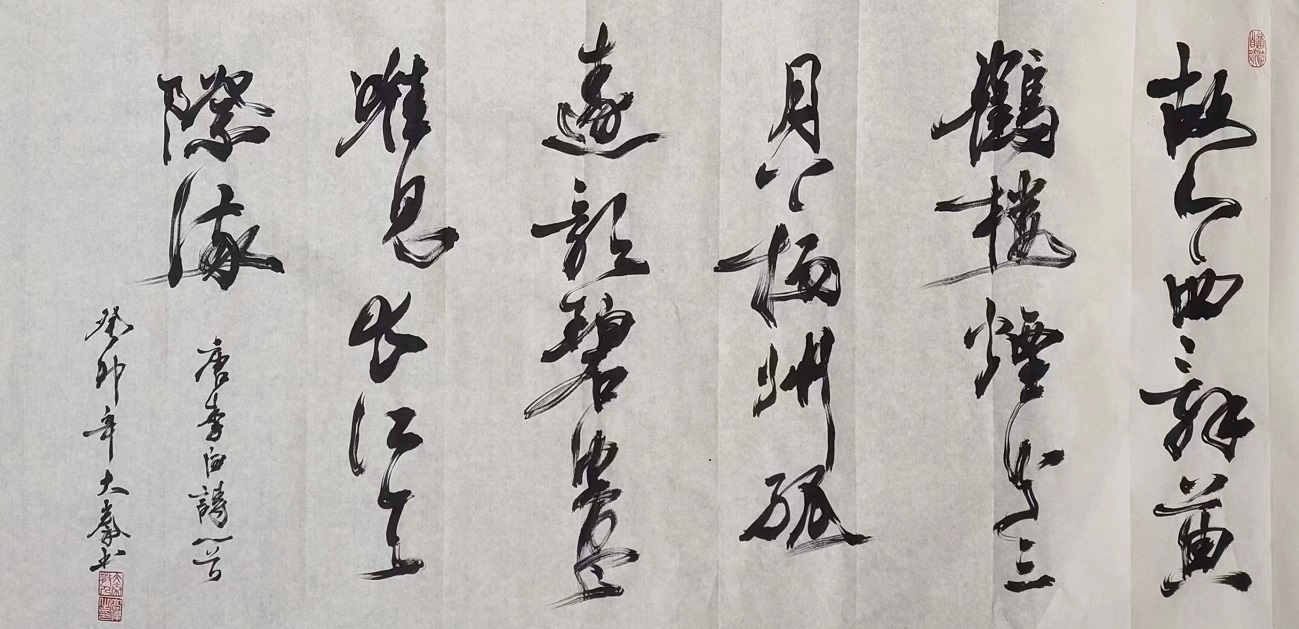 故人西辭黃
鶴樓煙花三
月下揚州孤
遠影碧空盡
唯見長江天
際流
唐李白詩一首
癸卯年大秦书